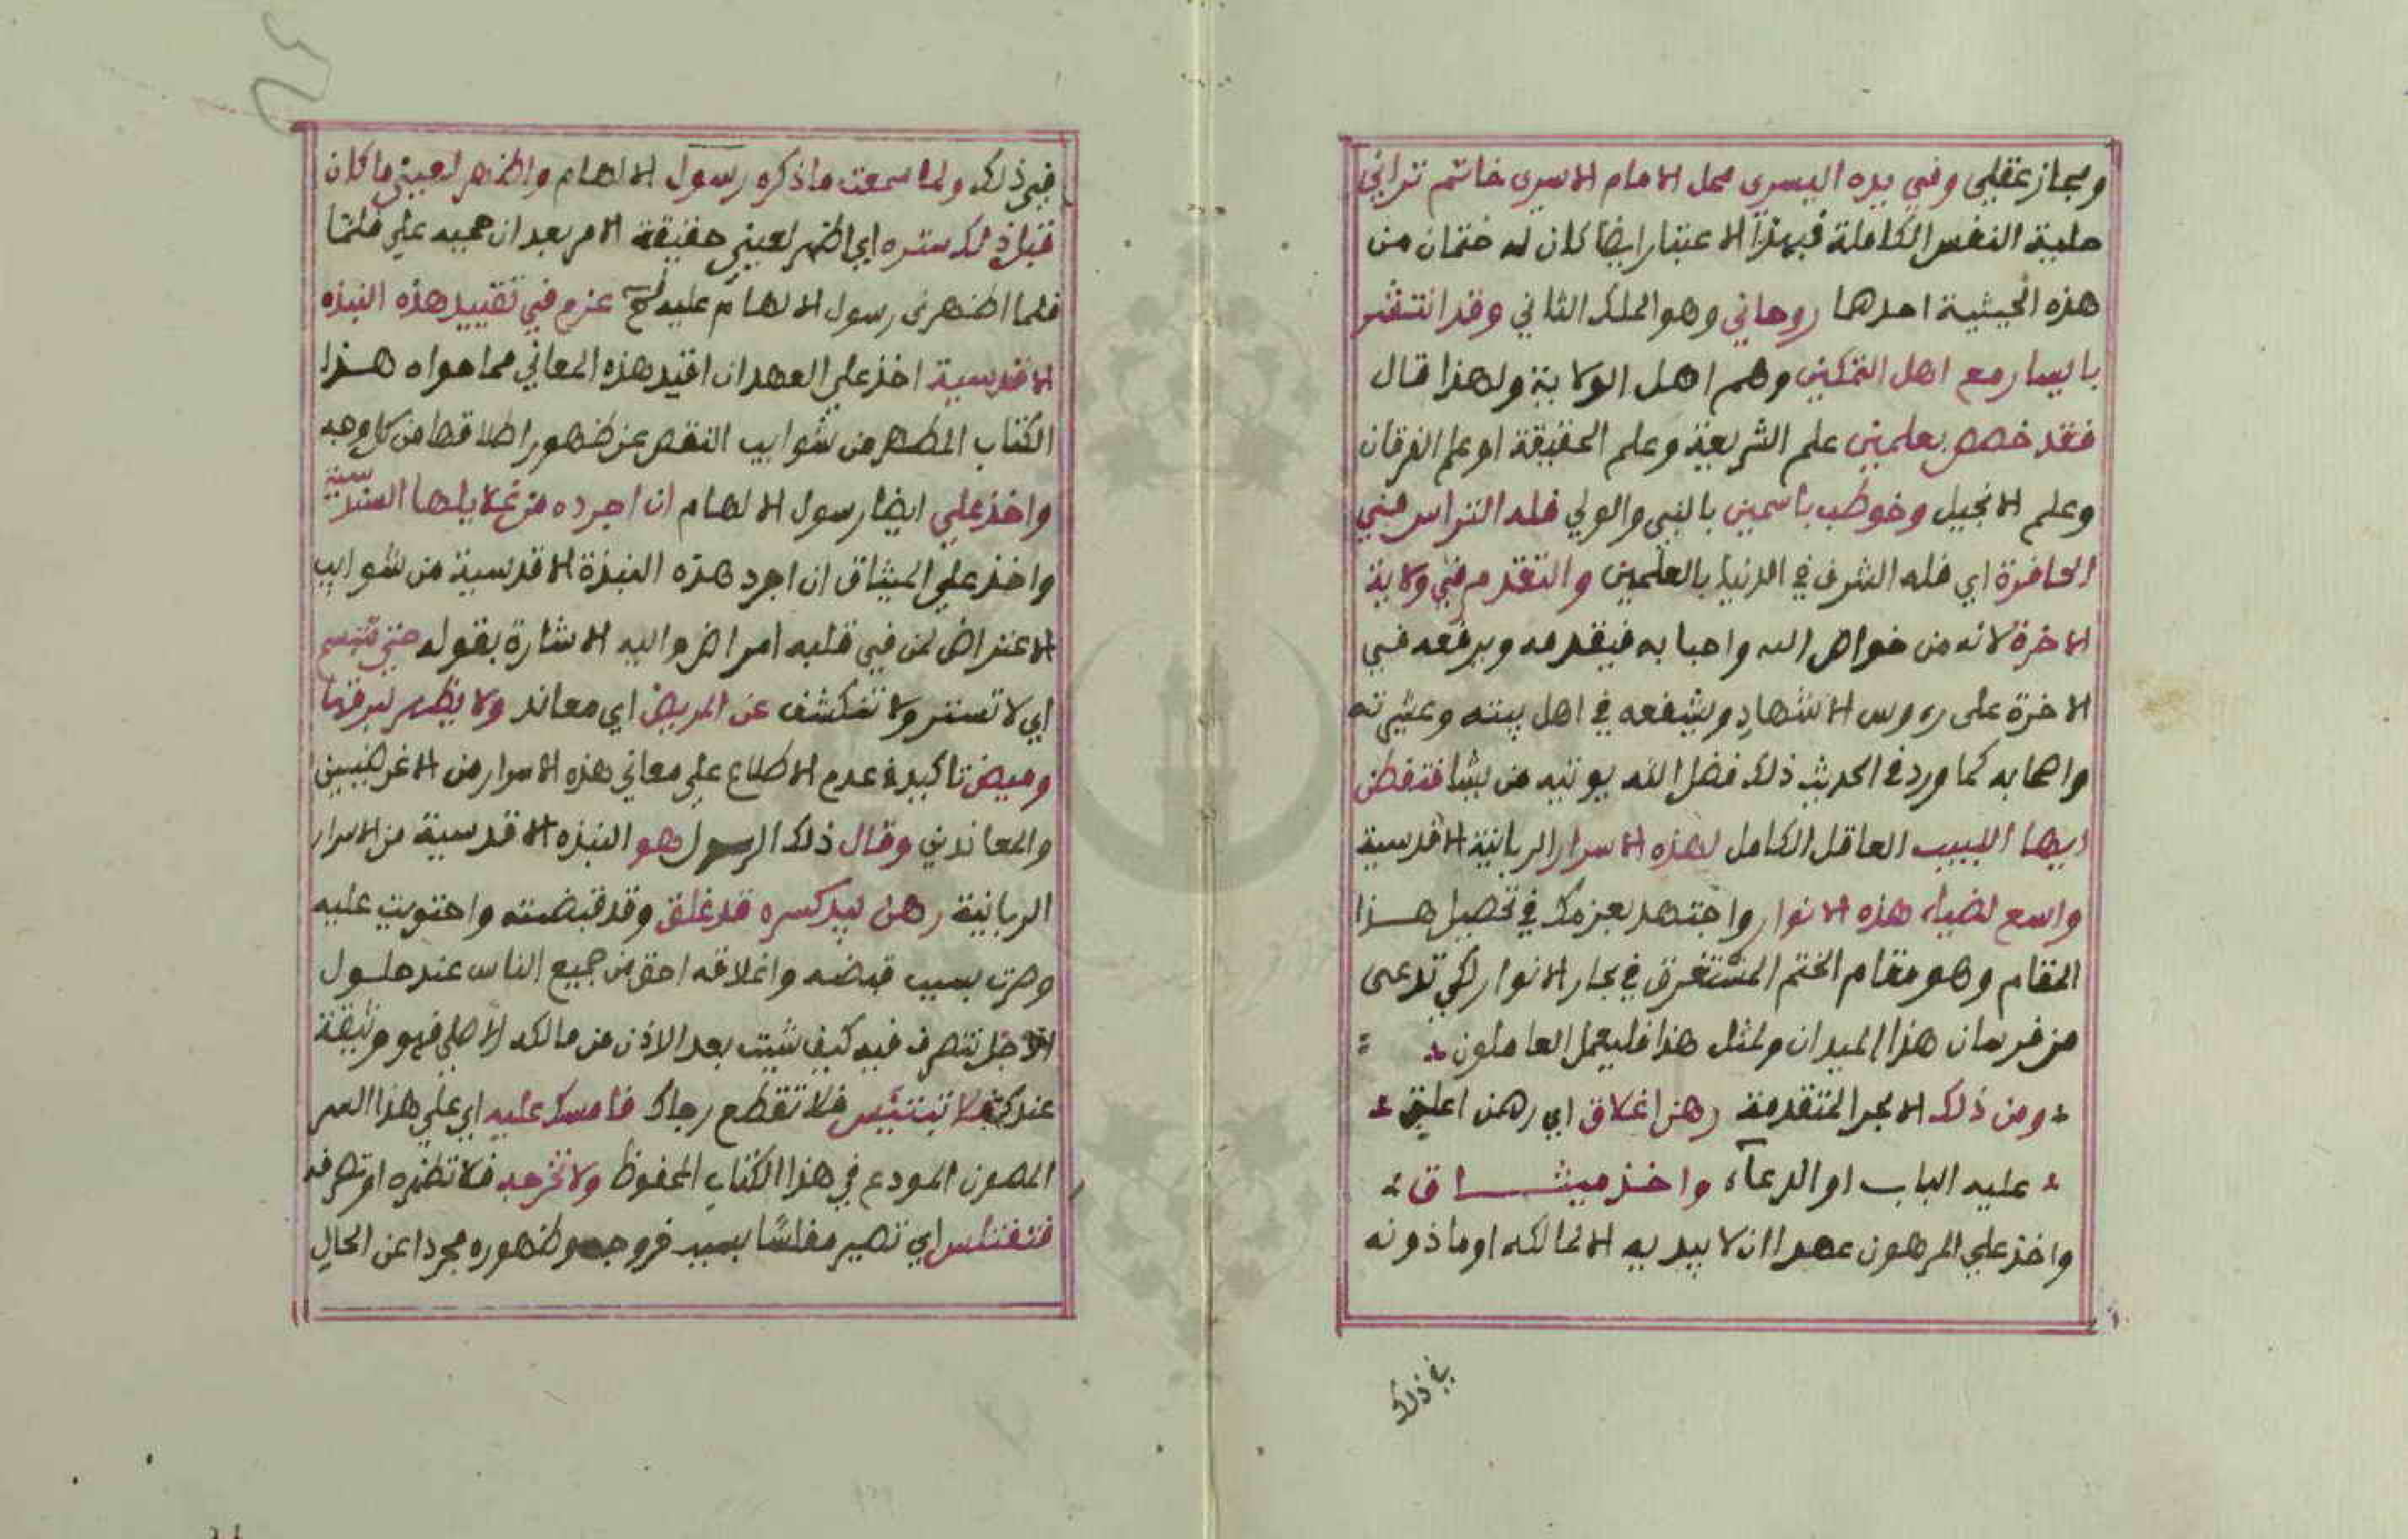 ومجاز عقلي وفي يده اليسري محل الامام الاسري خاتم ترابي
حلية النفس الكاملة فبهذا الاعتبار ايضا كان له ختمان من
هذه الحيثية احدهما روحاني وهو الملك الثاني وقد انتشر
باليسار مع اهل التمكين وهم اهل الولاية ولهذا قال
فقد خصص بعلمين علم الشريعة وعلم الحقيقة او علم الفرقان
وعلم الانجيل وخوطب باسمين بالنبي والولي فله التراس في
الحافرة اي فله الشرف في الدنيا بالعلمين والتقدم في ولاية
الاخرة لانه من خواص الله واحبابه فيقدمه ويرفعه في
الاخرة على رءوس الاشهاد ويشفعه في اهل بيته وعشيرته
واصحابه كما ورد في الحديث ذلك فضل الله يوتيه من يشا فتفطن
ايها اللبيب العاقل الكامل لهذه الاسرار الربانية الاقدسية
واسع لضياء هذه الانوار واجتهد بعزمك في تحصيل هذا
المقام وهو مقام الختم المستغرق في بحار الانوار لكي تدعى
من فرسان هذا الميدان ولمثل هذا فليعمل العاملون
ومن ذلك الابحر المتقدمة رهن اغلاق اي رهن اغلق
عليه الباب او الدعاء واخذ ميثاق
واخذ علي المرهون عهدا ان لا يبديه الا لمالكه او ماذونه
في ذلك
في ذلك ولما سمعت ما ذكره رسول الالهام واظهر لعيني ما كان
قبل ذلك ستره اي اظهر لعيني حقيقة الامر بعد ان حجبه علي فلما
فلما اظهر لي رسول الالهام عليه عزم في تقييد هذه النبذه
الاقدسية اخذ علي العهد ان اقيد هذه المعاني مما حواه هذا
الكتاب المطهر من شوايب النقص عن ظهور اطلاقها من كل وجه
واخذ علي ايضا رسول الالهام ان اجرده من غلايلها السندسية
واخذ علي الميثاق ان اجرد هذه النبذة الاقدسية من شوايب
الاعتراض لمن في قلبه امراض واليه الاشارة بقوله
اي لا تستتر ولا تنكشف عن المريض اي معاند ولا يظهر لبرقها
وميض تاكيد في عدم الاطلاع علي معاني هذه الاسرار من الاغرضيين
والمعاندين وقال ذلك الرسول هو النبذه الاقدسية من الاسرار
الربانية رهن بيدك سره قد غلق وقد قبضته واحتويت عليه
وصرت بسبب قبضه واغلاقه احق من جميع الناس عند حلول
الاجل تتصرف فيه كيف شيت بعد الاذن من مالكه الاصلي فهو وثيقة
عندك فلا تبتئس فلا تقطع رجاك فامسك عليه اي علي هذا السر
المصون المودع في هذا الكتاب المحفوظ ولا تخرجه فلا تظهره او تصرفه
فتفتلس اي تصير مفلسا بسبب خروجه وظهوره مجردا عن الحال